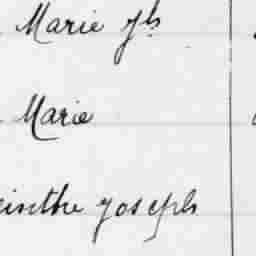 Marie Jh
Marie
cinthe Joseph